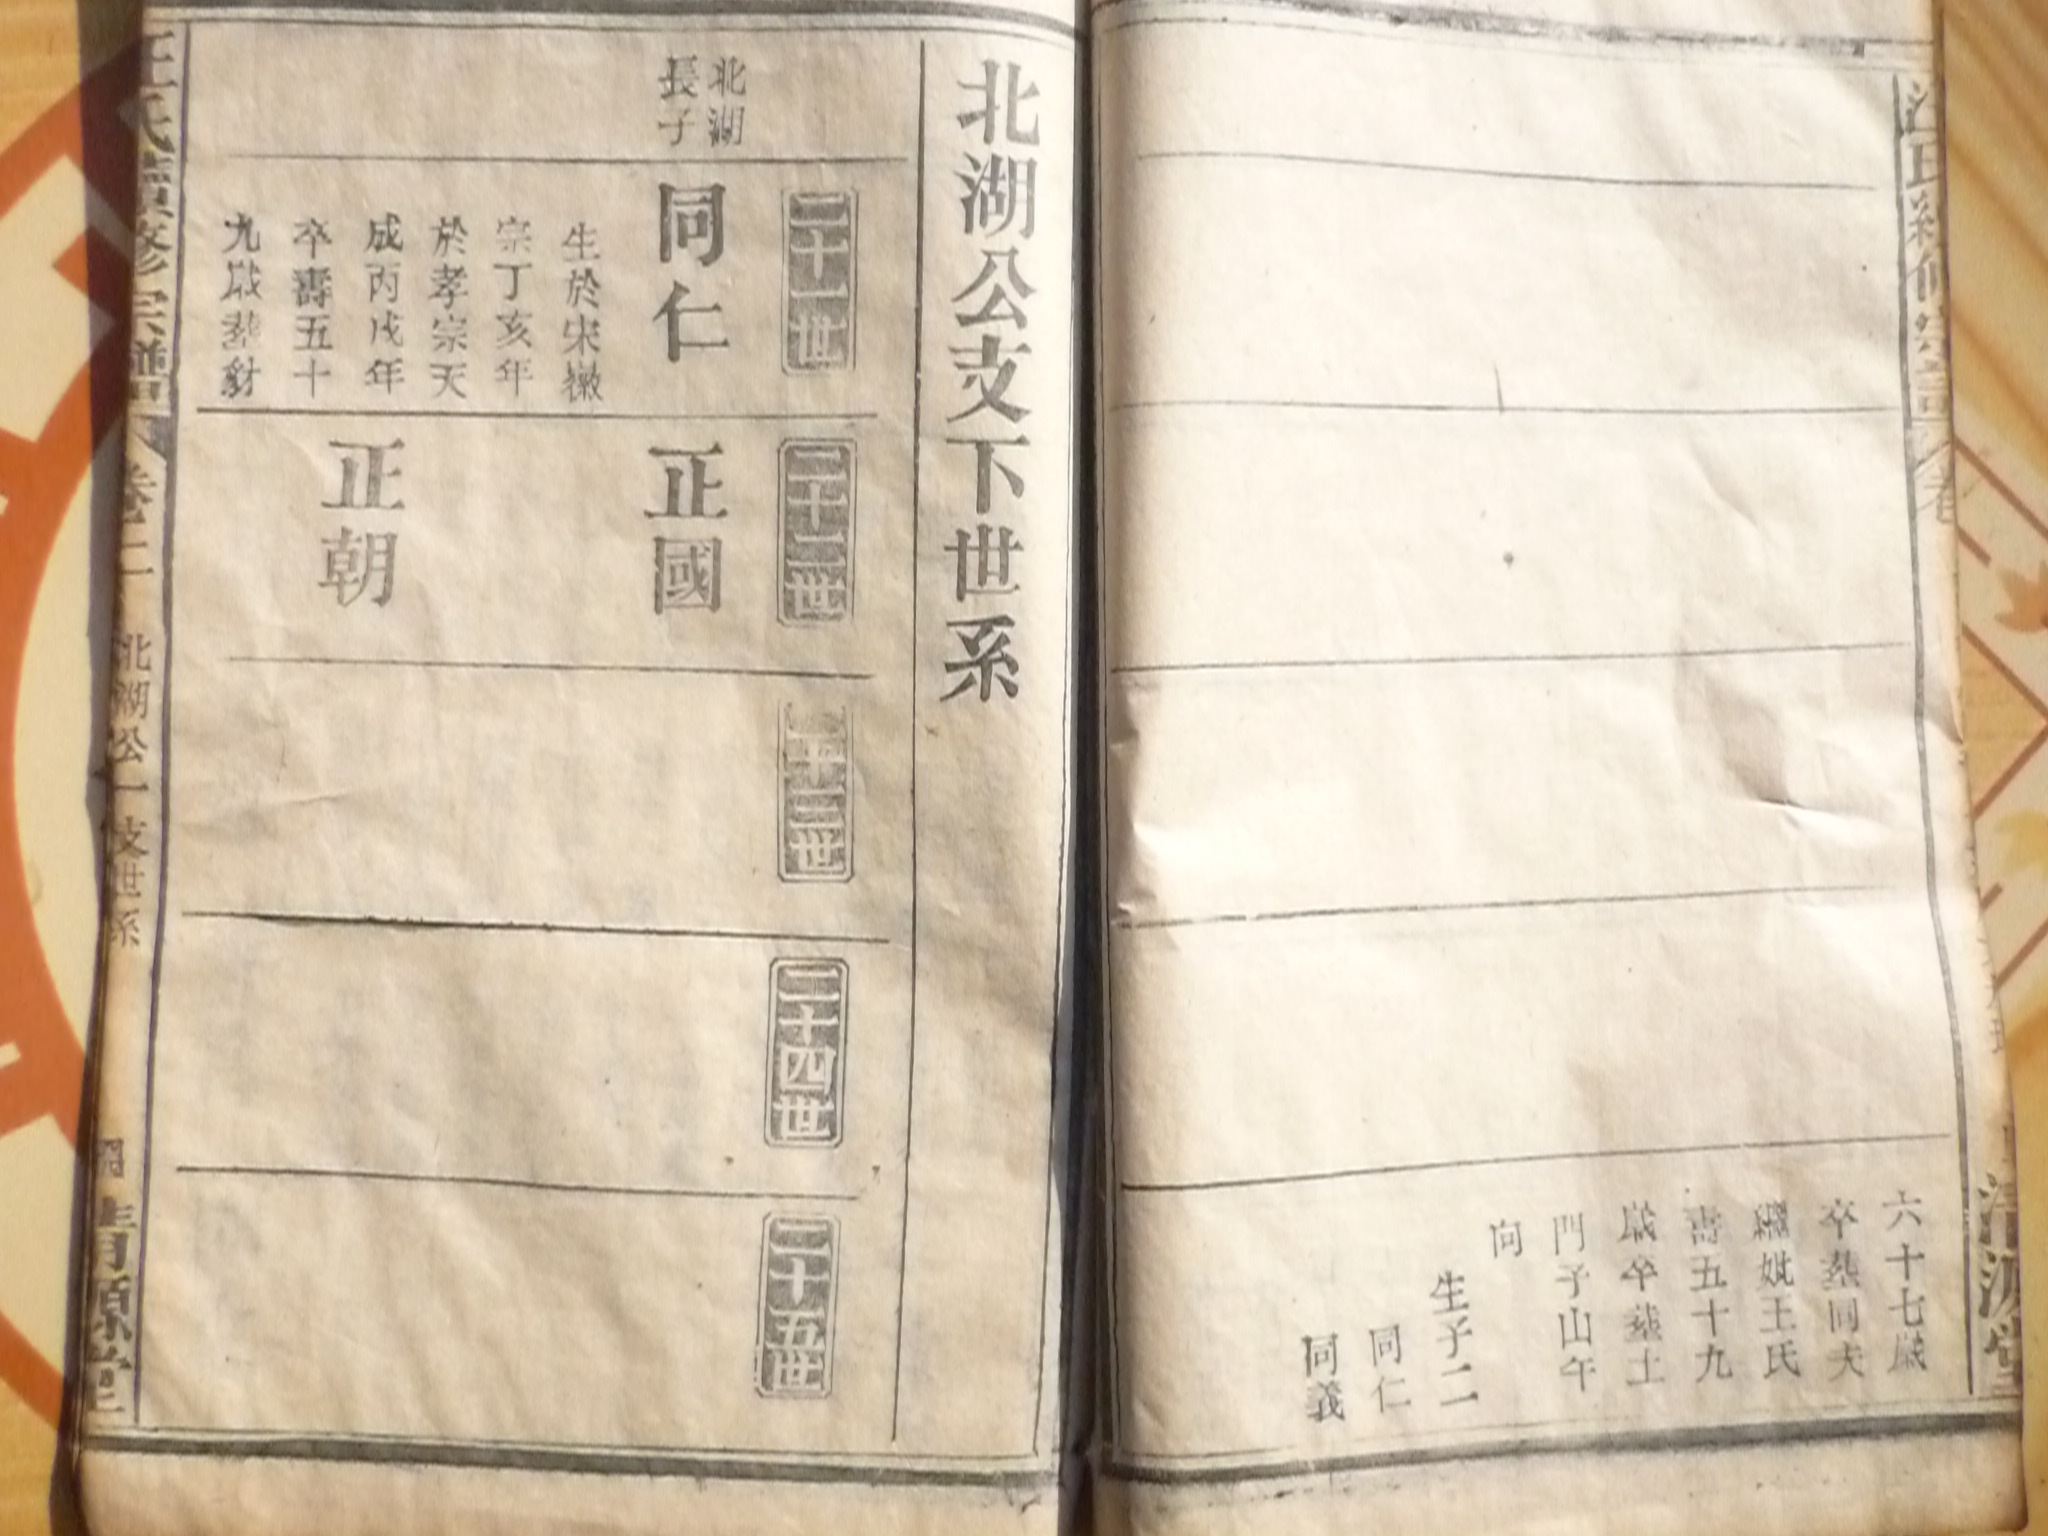 六十七歲
卒塟同夫
繼妣王氏
壽五十九
歲卒塟土
門子山午
向
生子二
同仁
同義
清源堂
北湖公支下世系
北湖
長子
二十一世
同仁
生於宋徽
宗丁亥年
於孝宗天
成丙戌年
卒壽五十
九歲塟豺
二十二世
正國
正朝
二十三世
二十四世
二十五世
汪氏續修宗譜
卷二
北湖公一支世系
清源堂